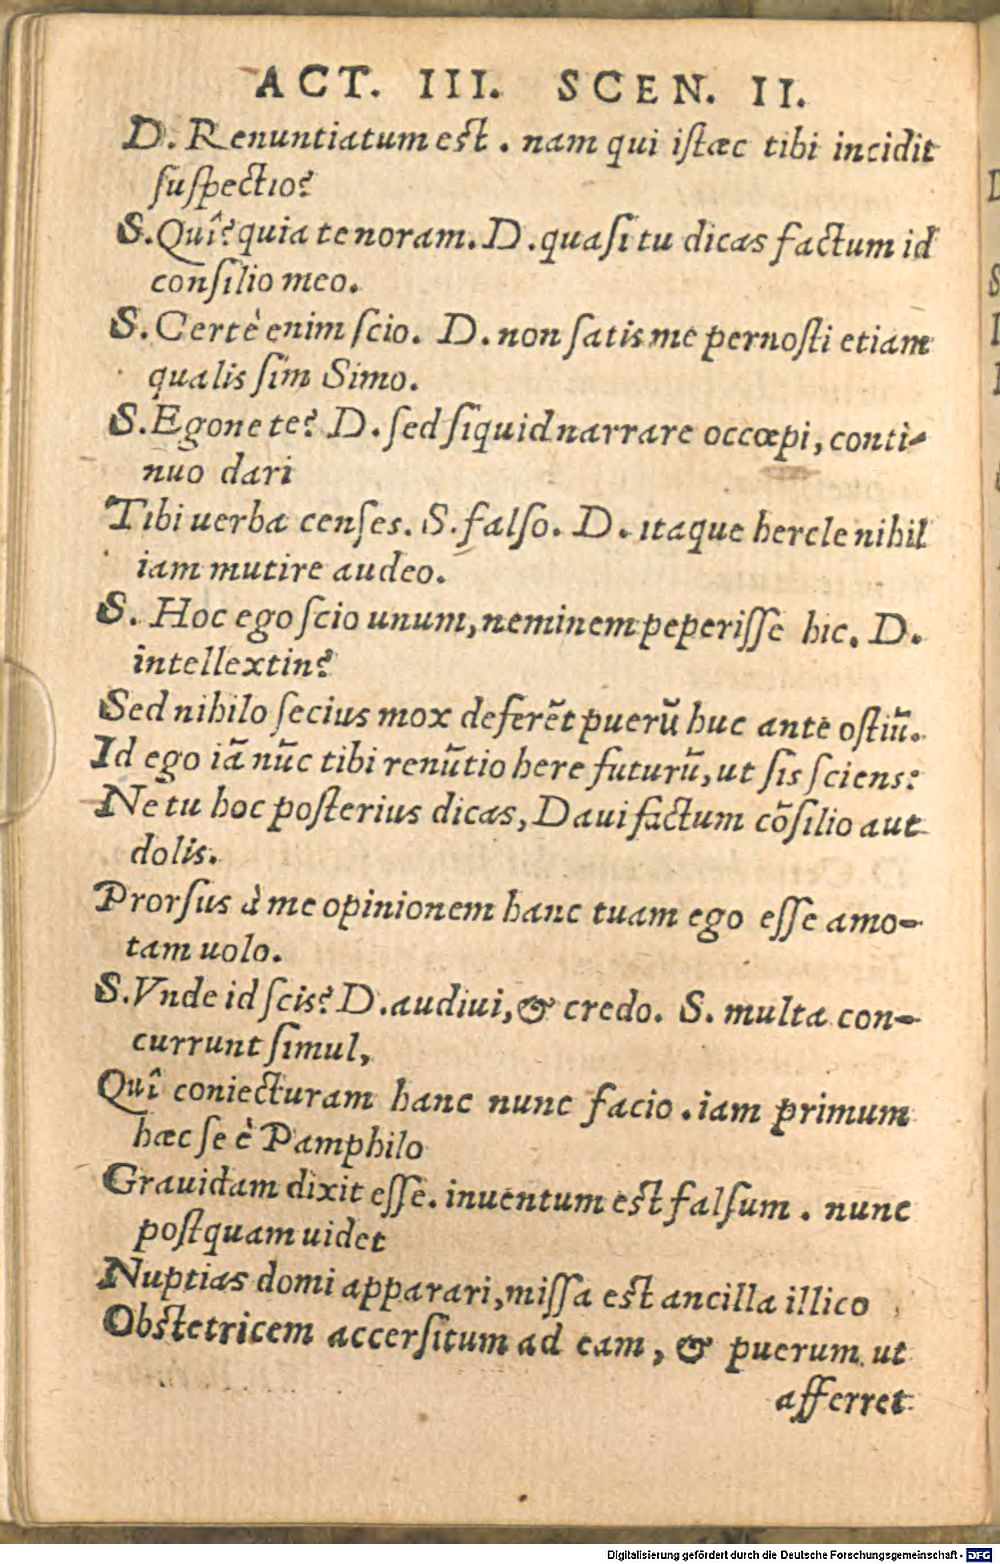 ACT. III. SCEN. II.
D. Renuntiatum est. nam qui istæc tibi incidit
suspectio?
S. Quî? quia te noram. D. quasi tu dicas factum id
consilio meo.
S. Certè enim scio. D. non satis me pernosti etiam
qualis sim Simo.
S. Egone te? D. sed siquid narrare occœpi, conti-
nuo dari
Tibi uerba censes. S. falso. D. itaque hercle nihil
iam mutire audeo.
S. Hoc ego scio unum, neminem peperisse hic. D.
intellextin?
Sed nihilo secius mox deferẽt puerũ huc ante ostiũ.
Id ego iã nũc tibi renũtio here futurũ, ut sis sciens:
Ne tu hoc posterius dicas, Daui factum cõsilio aut
dolis.
Prorsus à me opinionem hanc tuam ego esse amo-
tam uolo.
S. Vnde id scis? D. audiui, & credo. S. multa con-
currunt simul,
Quî coniecturam hanc nunc facio. iam primum
hæc se è Pamphilo
Grauidam dixit esse. inuentum est falsum. nunc
postquam uidet
Nuptias domi apparari, missa est ancilla illico
Obstetricem accersitum ad eam, & puerum ut
afferret
Digitalisierung gefördert durch die Deutsche Forschungsgemeinschaft - DFG